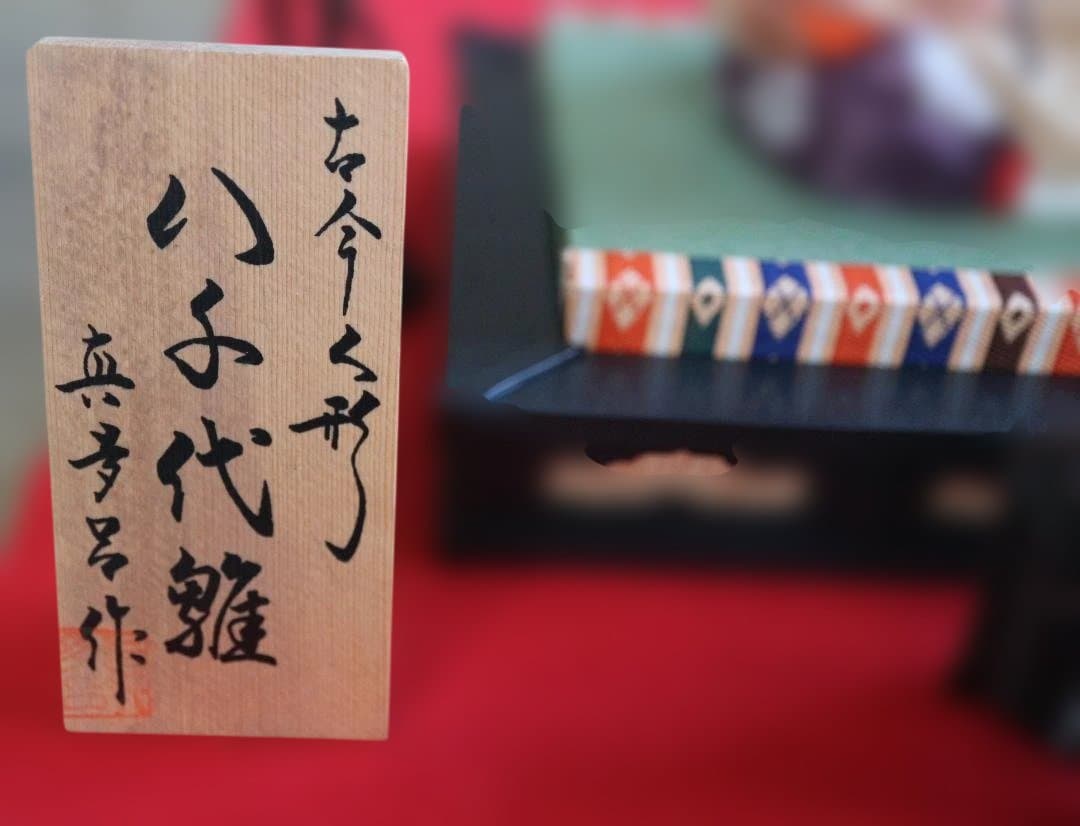 古今人形
八千代雛
真多呂作